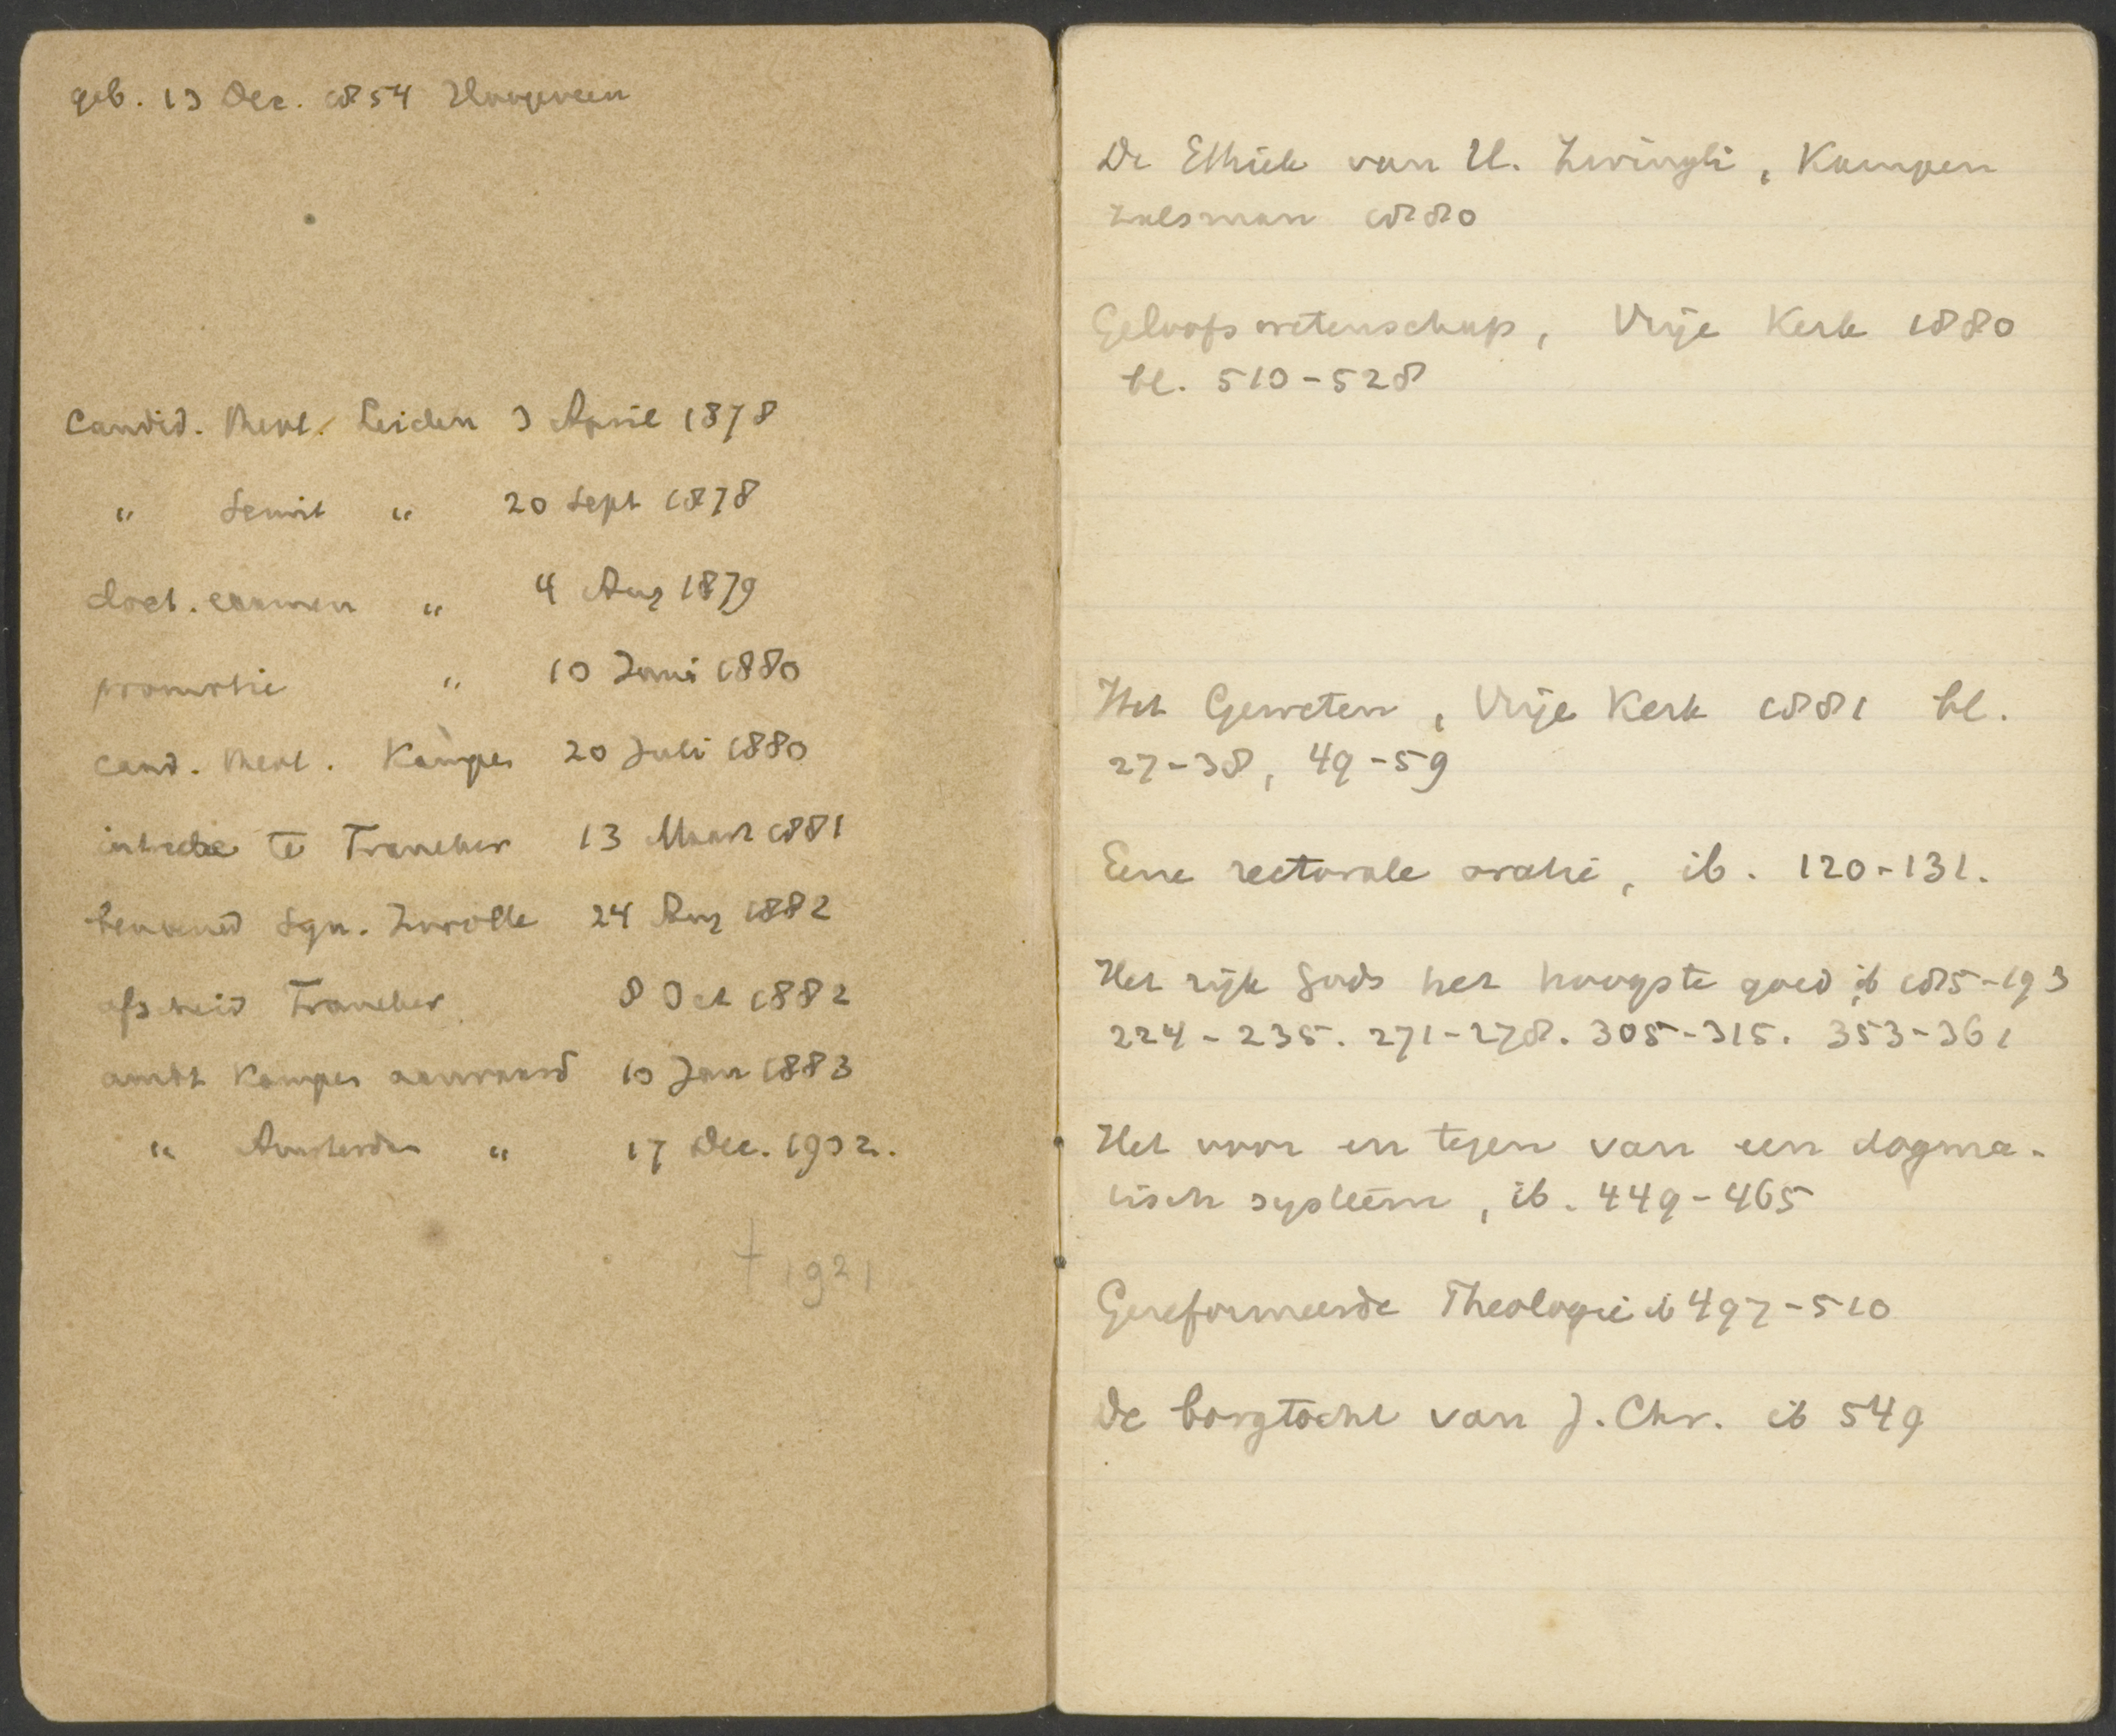 geb. 13 Dec. 1854 Hoogeveen
Candid. theol. Leiden 3 April 1878
" Semit " 20 Sept 1878
doct. examen " 4 Aug 1879
promotie " 10 Juni 1880
cand. theol. Kampen 20 Juli 1880
intrede te Franeker 13 Maart 1881
benoemd Syn. Zwolle 24 Aug 1882
afscheid Franeker 8 Oct 1882
ambt Kampen aanvaard 10 Jan 1883
" Amsterdam " 17 Dec. 1902.
† 1921
De Ethiek van U. Zwingli, Kampen
Zalsman 1880
Geloofswetenschap, Vrije Kerk 1880
bl. 510-528
Het Geweten, Vrije Kerk 1881 bl.
27-38, 49-59
Eene rectorale oratie, ib. 120-131.
Het rijk Gods het hoogste goed ib 185-193
224-235. 271-278. 305-315. 353-361
Het voor en tegen van een dogma-
tisch systeem, ib. 449-465
Gereformeerde Theologie ib 497-510
De borgtocht van J. Chr. ib 549